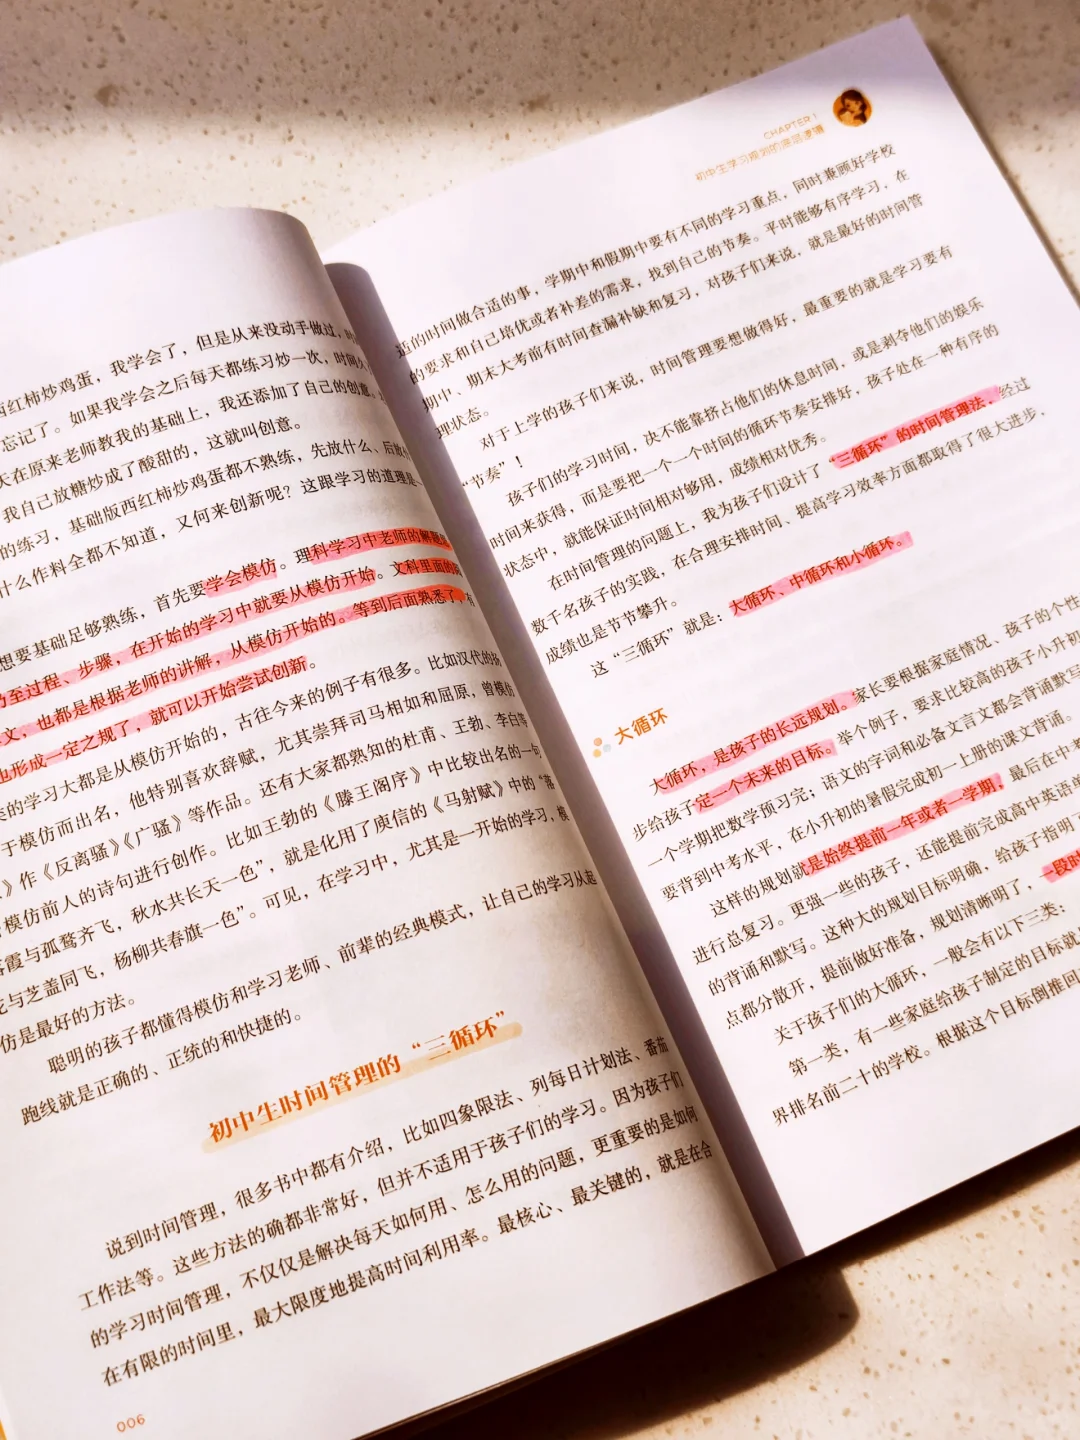 西红柿炒鸡蛋，我学会了，但是从来没动手做过，时
忘记了。如果我学会之后每天都练习炒一次，时间久
天在原来老师教我的基础上，我还添加了自己的创意。
我自己放糖炒成了酸甜的，这就叫创意。
的练习，基础版西红柿炒鸡蛋都不熟练，先放什么、后放
什么作料全都不知道，又何来创新呢？这跟学习的道理是一
想要基础足够熟练，首先要学会模仿。理科学习中老师的解题
乃至过程、步骤，在开始的学习中就要从模仿开始。文科里面的
文，也都是根据老师的讲解，从模仿开始的。等到后面熟悉了，有
也形成一定之规了，就可以开始尝试创新。
类的学习大都是从模仿开始的，古往今来的例子有很多。比如汉代的扬
于模仿而出名，他特别喜欢辞赋，尤其崇拜司马相如和屈原，曾模仿
》作《反离骚》《广骚》等作品。还有大家都熟知的杜甫、王勃、李白等
模仿前人的诗句进行创作。比如王勃的《滕王阁序》中比较出名的一句
落霞与孤鹜齐飞，秋水共长天一色”，就是化用了庾信的《马射赋》中的“落
花与芝盖同飞，杨柳共春旗一色”。可见，在学习中，尤其是一开始的学习，模
仿是最好的方法。
聪明的孩子都懂得模仿和学习老师、前辈的经典模式，让自己的学习从起
跑线就是正确的、正统的和快捷的。
初中生时间管理的“三循环”
说到时间管理，很多书中都有介绍，比如四象限法、列每日计划法、番茄
工作法等。这些方法的确都非常好，但并不适用于孩子们的学习。因为孩子们
的学习时间管理，不仅仅是解决每天如何用、怎么用的问题，更重要的是如何
在有限的时间里，最大限度地提高时间利用率。最核心、最关键的，就是在合
006
CHAPTER 1
初中生学习规划的底层逻辑
适的时间做合适的事，学期中和假期中要有不同的学习重点，同时兼顾好学校
的要求和自己培优或者补差的需求，找到自己的节奏。平时能够有序学习，在
期中、期末大考前有时间查漏补缺和复习，对孩子们来说，就是最好的时间管
理状态。
对于上学的孩子们来说，时间管理要想做得好，最重要的就是学习要有
“节奏”！
孩子们的学习时间，决不能靠挤占他们的休息时间，或是剥夺他们的娱乐
时间来获得，而是要把一个一个时间的循环节奏安排好，孩子处在一种有序的
状态中，就能保证时间相对够用，成绩相对优秀。
在时间管理的问题上，我为孩子们设计了“三循环”的时间管理法，经过
数千名孩子的实践，在合理安排时间、提高学习效率方面都取得了很大进步，
成绩也是节节攀升。
这“三循环”就是：大循环、中循环和小循环。
大循环
大循环，是孩子的长远规划。家长要根据家庭情况、孩子的个性
步给孩子定一个未来的目标。举个例子，要求比较高的孩子小升初
一个学期把数学预习完；语文的字词和必备文言文都会背诵默写
要背到中考水平，在小升初的暑假完成初一上册的课文背诵。
这样的规划就是始终提前一年或者一学期，最后在中考
进行总复习。更强一些的孩子，还能提前完成高中英语单
的背诵和默写。这种大的规划目标明确，给孩子指明了
点都分散开，提前做好准备，规划清晰明了，一段时
关于孩子们的大循环，一般会有以下三类：
第一类，有一些家庭给孩子制定的目标就
界排名前二十的学校。根据这个目标倒推回